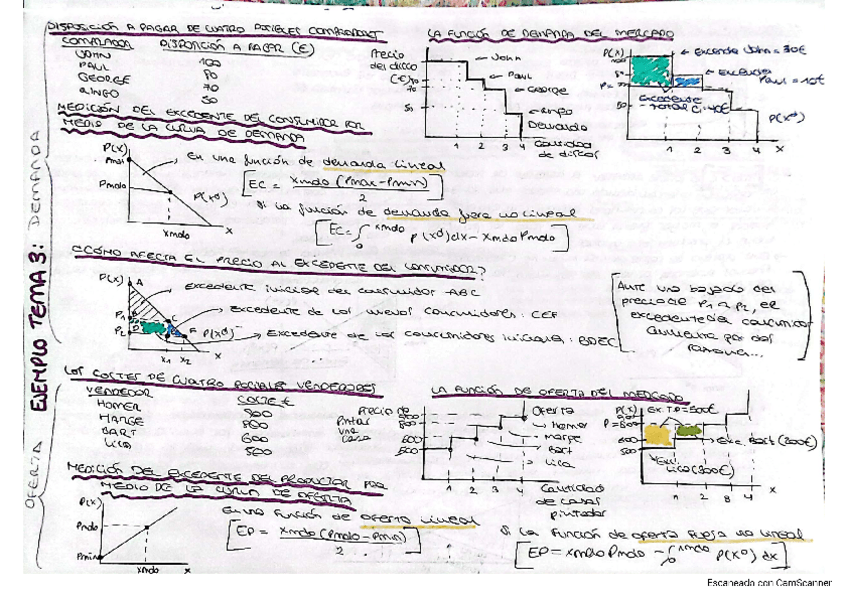 DISPOSICIÓN A PAGAR DE CUATRO POSIBLES COMPRADORES
COMPRADOR DISPOSICIÓN A PAGAR (€)
JOHN 100
PAUL 80
GEORGE 70
RINGO 50
MEDICIÓN DEL EXCEDENTE DEL CONSUMIDOR POR
MEDIO DE LA CURVA DE DEMANDA
LA FUNCIÓN DE DEMANDA DEL MERCADO
Precio
del disco
(€)
70
50
John
Paul
George
Ringo
Demanda
1 2 3 4
Cantidad
de discos
P(x)
Excende John = 30€
Excende
Paul = 10€
Excedente
total C = 40€
P(x^d)
1 2 3 4 x
P(x)
Pmax
Pmdo
P(x^d)
xmdo x
En una función de demanda lineal
EC = xmdo (Pmax - Pmin) / 2
Si la función de demanda fuera no lineal
EC = ∫₀^xmdo p(x^d)dx - xmdo Pmdo
¿CÓMO AFECTA EL PRECIO AL EXCEDENTE DEL CONSUMIDOR?
P(x)
A
P1
P2
C
F
P(x^d)
x1 x2 x
excedente inicial del consumidor ABC
Excedente de los nuevos consumidores: CEF
Excedente de los consumidores iniciales: BDEC
Ante una bajada del
precio de P1 a P2, el
excedente del consumidor
aumenta por dos
EJEMPLO TEMA 3: DEMANDA
OFERTA
LOS COSTES DE CUATRO POSIBLES VENDEDORES
VENDEDOR COSTE €
HOMER 900
MARGE 800
BART 600
LISA 500
LA FUNCIÓN DE OFERTA DEL MERCADO
Precio de
pintar
una
casa
900
800
600
500
Oferta
homer
marge
Bart
lisa
1 2 3 4
Cantidad
de casas
pintadas
P(x)
900
P=800
600
500
Ex.T.P=500€
Exc. Bart (200€)
Exc.
Lisa (300€)
1 2 3 4 x
MEDICIÓN DEL EXCEDENTE DEL PRODUCTOR POR
MEDIO DE LA CURVA DE OFERTA
P(x)
Pmdo
Pmin
xmdo x
En una función de oferta lineal
EP = xmdo (Pmdo - Pmin) / 2
Si la función de oferta fuese no lineal
EP = xmdo Pmdo - ∫₀^xmdo p(x^o) dx
Escaneado con CamScanner